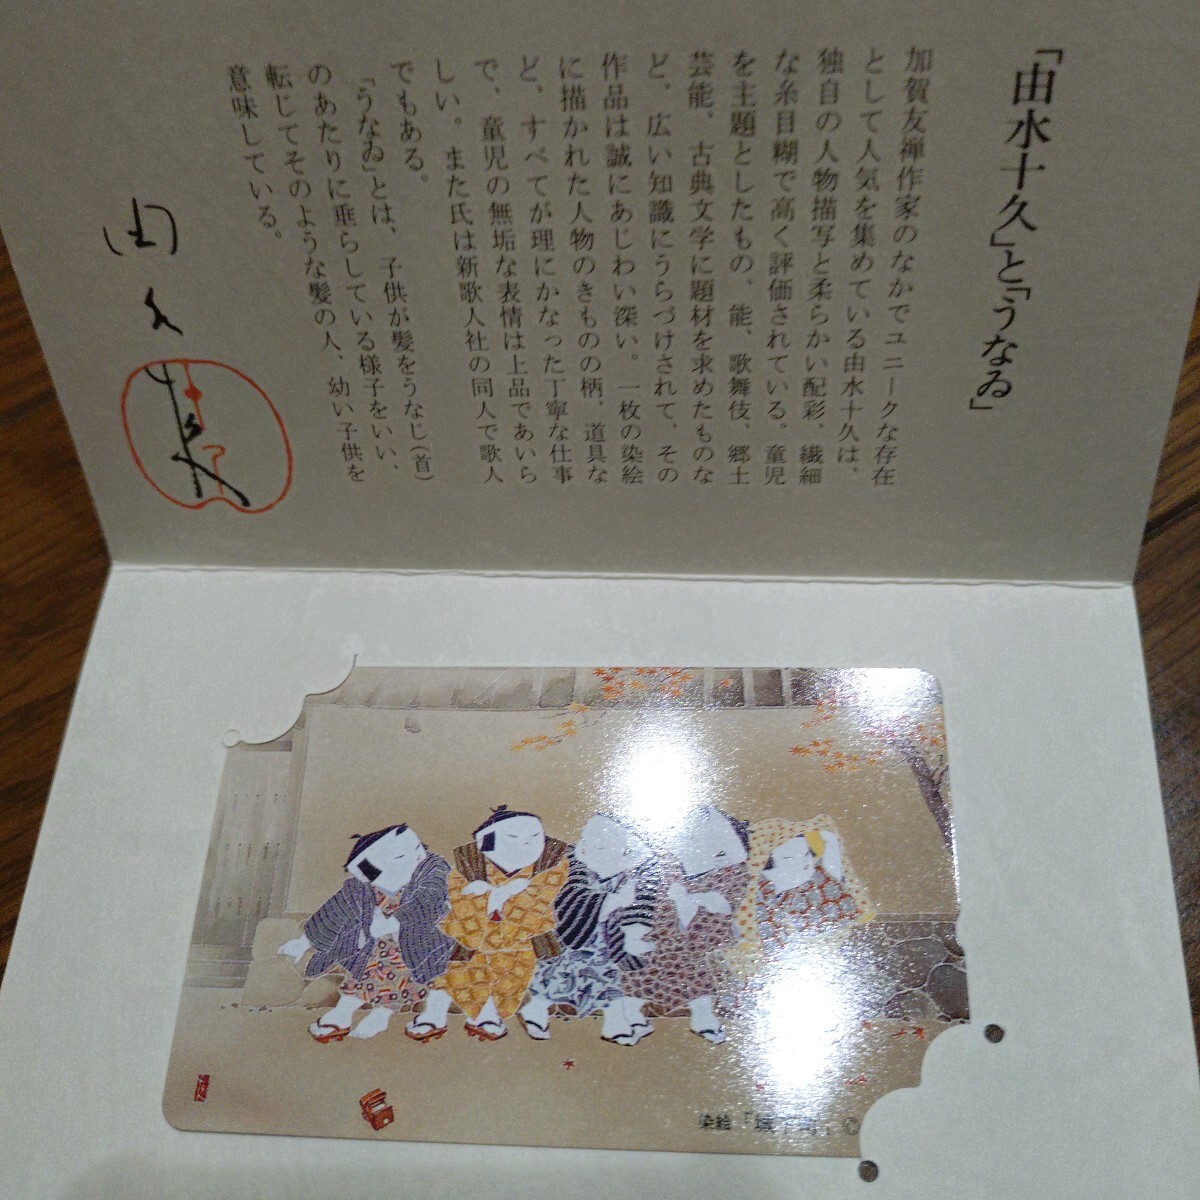 「由水十久」と「うなゐ」
加賀友禅作家のなかでユニークな存在
として人気を集めている由水十久は、
独自の人物描写と柔らかい配彩、繊細
な糸目糊で高く評価されている。童児
を主題としたもの、能、歌舞伎、郷土
芸能、古典文学に題材を求めたものな
ど、広い知識にうらづけされて、その
作品は誠にあじわい深い。一枚の染絵
に描かれた人物のきものの柄、道具な
ど、すべてが理にかなった丁寧な仕事
で、童児の無垢な表情は上品であいら
しい。また氏は新歌人社の同人で歌人
でもある。
「うなゐ」とは、子供が髪をうなじ(首)
のあたりに垂らしている様子をいい、
転じてそのような髪の人、幼い子供を
意味している。
由久
染絵「城下町」©